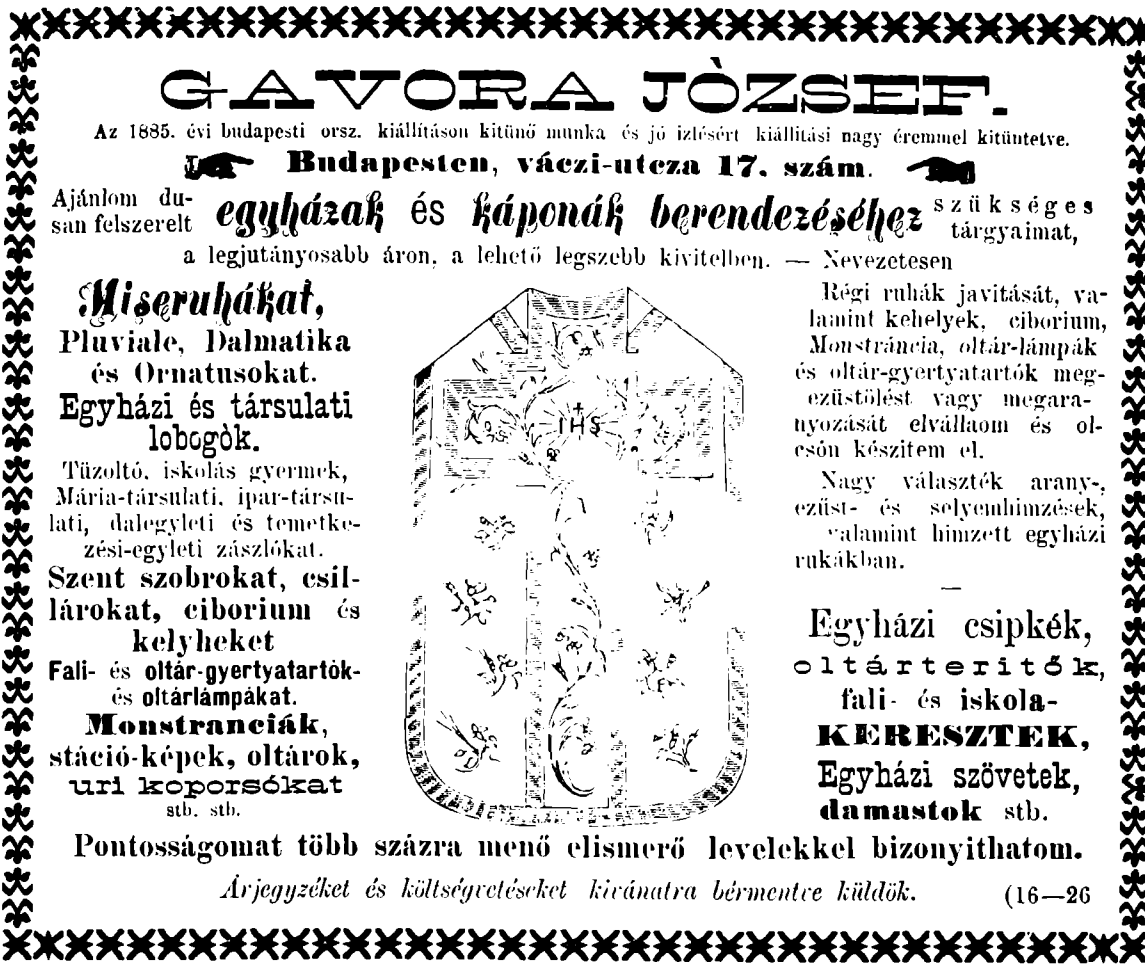 GAVORA JÒZSEF.
Az 1885. évi budapesti orsz. kiállításon kitünő munka és jó izlésért kiállitási nagy éremmel kitüntetve.
Budapesten, váczi-utcza 17. szám.
Ajánlom du-
san felszerelt
egyházak és káponák berendezéséhez
szükséges
tárgyaimat,
a legjutányosabb áron, a lehető legszebb kivitelben. — Nevezetesen
Miseruhákat,
Pluviale, Dalmatika
és Ornatusokat.
Egyházi és társulati
lobogòk.
Tüzoltó, iskolás gyermek,
Mária-társulati, ipar-társu-
lati, dalegyleti és temetke-
zési-egyleti zászlókat.
Szent szobrokat, csil-
lárokat, ciborium és
kelyheket
Fali- és oltár-gyertyatartók-
és oltárlámpákat.
Monstranciák,
stáció-képek, oltárok,
uri koporsókat
stb. stb.
IHS
Régi ruhák javitását, va-
lamint kehelyek, ciborium,
Monstráncia, oltár-lámpák
és oltár-gyertyatartók meg-
ezüstölést vagy megara-
nyozását elvállaom és ol-
csón készitem el.
Nagy választék arany-,
ezüst- és selyemhimzések,
valamint himzett egyházi
rukákban.
Egyházi csipkék,
oltárteritők,
fali- és iskola-
KERESZTEK,
Egyházi szövetek,
damastok stb.
Pontosságomat több százra menő elismerő levelekkel bizonyithatom.
Árjegyzéket és költségvetéseket kivánatra bérmentve küldök.
(16—26